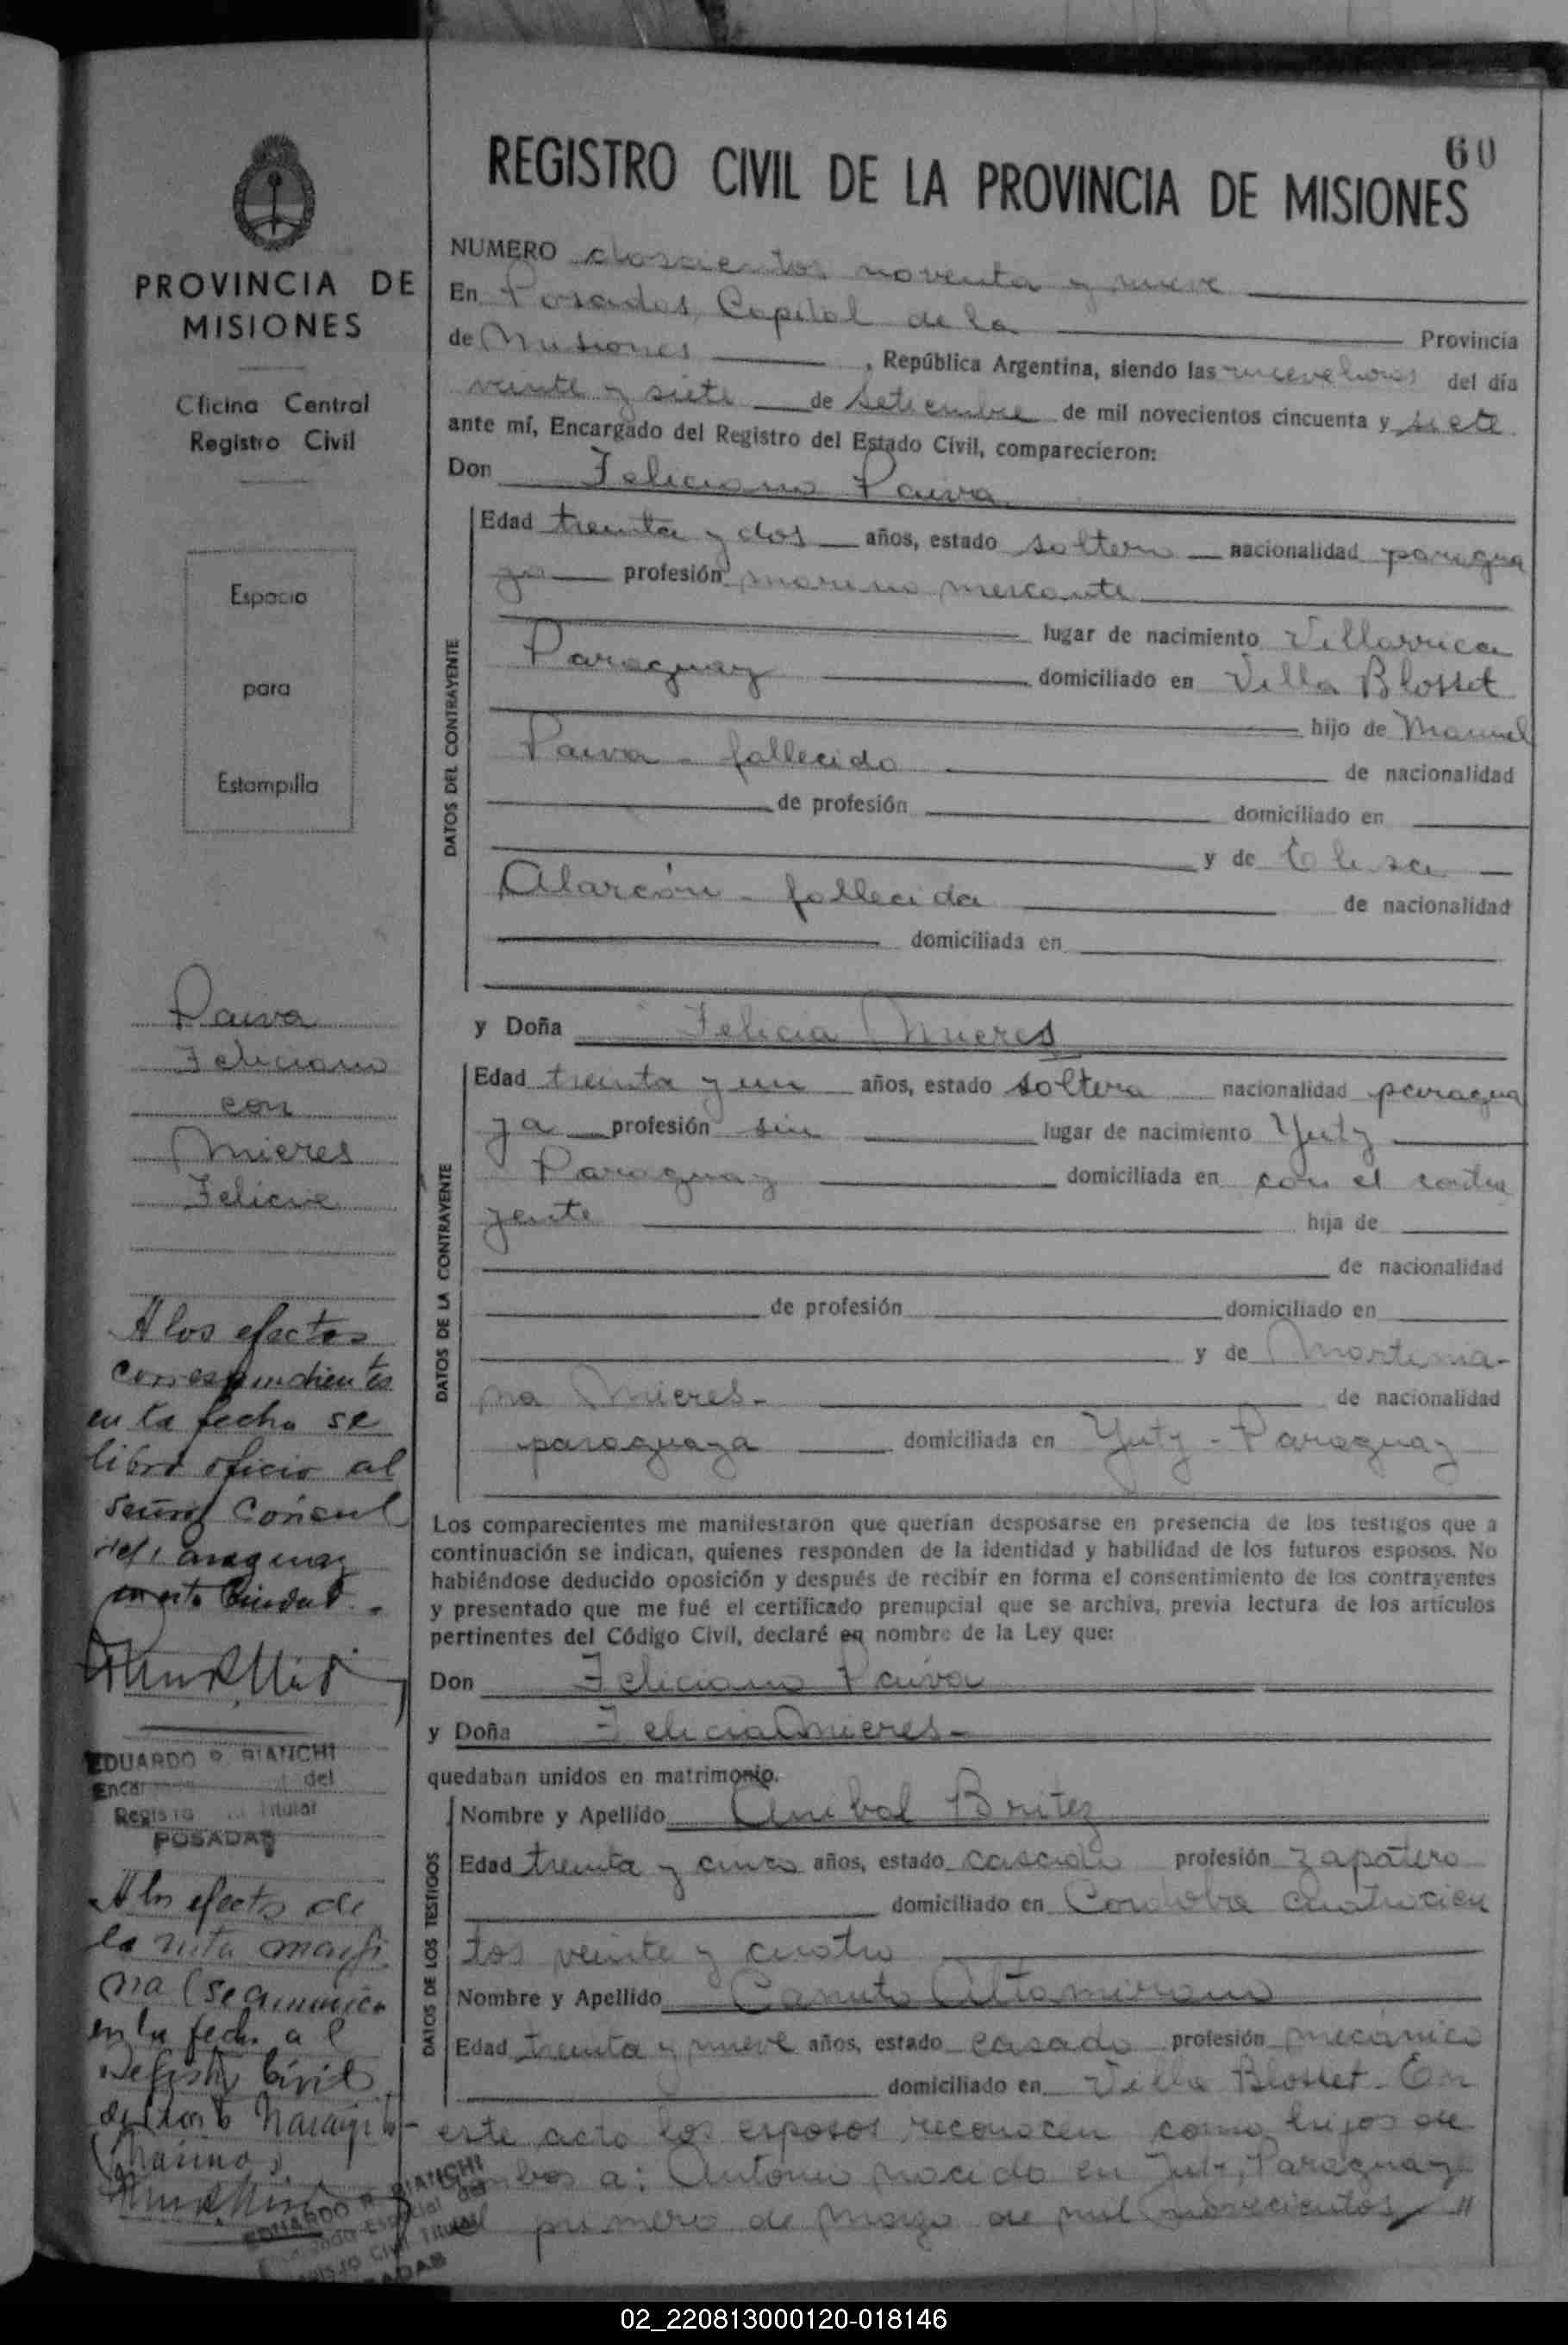 60
REGISTRO CIVIL DE LA PROVINCIA DE MISIONES
PROVINCIA DE
MISIONES
Oficina Central
Registro Civil
Espacio
para
Estampilla
Paiva
Feliciano
con
Mieres
Felicia
A los efectos
correspondientes
en la fecha se
libró oficio al
señor Cónsul
del Paraguay
en esta Ciudad.
EDUARDO R. BIANCHI
del
Titular
POSADAS
A los efectos de
la nota margi
na(se comunico
en la fecha al
Registro Civil
de Puerto Naranjito
EDUARDO R. BIANCHI
NUMERO doscientos noventa y nueve
En Posadas, Capital de la Provincia
de Misiones, República Argentina, siendo las nueve horas del día
veinte y siete de Setiembre de mil novecientos cincuenta y siete
ante mí, Encargado del Registro del Estado Civil, comparecieron:
Don Feliciano Paiva
DATOS DEL CONTRAYENTE
Edad treinta y dos años, estado soltero nacionalidad paragua
ya profesión marino mercante
lugar de nacimiento Villarrica
Paraguay domiciliado en Villa Blosset
hijo de Manuel
Paiva - fallecido de nacionalidad
de profesión domiciliado en
y de
Alarcón - fallecida de nacionalidad
domiciliada en
y Doña Felicia Mieres
DATOS DE LA CONTRAYENTE
Edad treinta y un años, estado soltera nacionalidad paragua
ya profesión sin lugar de nacimiento Yuty
Paraguay domiciliada en con el contra
yente hija de
de nacionalidad
de profesión domiciliado en
y de Martinia-
na Mieres- de nacionalidad
paraguaya domiciliada en Yuty - Paraguay
Los comparecientes me manifestaron que querían desposarse en presencia de los testigos que a
continuación se indican, quienes responden de la identidad y habilidad de los futuros esposos. No
habiéndose deducido oposición y después de recibir en forma el consentimiento de los contrayentes
y presentado que me fué el certificado prenupcial que se archiva, previa lectura de los artículos
pertinentes del Código Civil, declaré en nombre de la Ley que:
Don Feliciano Paiva
y Doña Felicia Mieres-
quedaban unidos en matrimonio.
DATOS DE LOS TESTIGOS
Nombre y Apellido Anibal Britez
Edad treinta y cinco años, estado casado profesión zapatero
domiciliado en Cordoba cuatrocien
tos veinte y cuatro
Nombre y Apellido Canuto Altamirano
Edad treinta y nueve años, estado casado profesión mecánico
domiciliado en Villa Blosset. En
este acto los esposos reconocen como hijos de
ambos a: Antonio nacido en Yuty, Paraguay
el primero de marzo de mil novecientos //
02_220813000120-018146